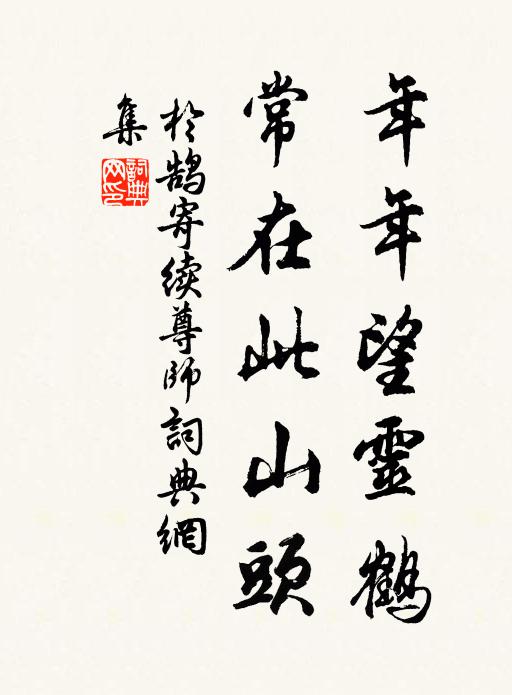 年年望靈鶴
常在此山頭
於鵠寄續尊師詞典網
集
詞典網印